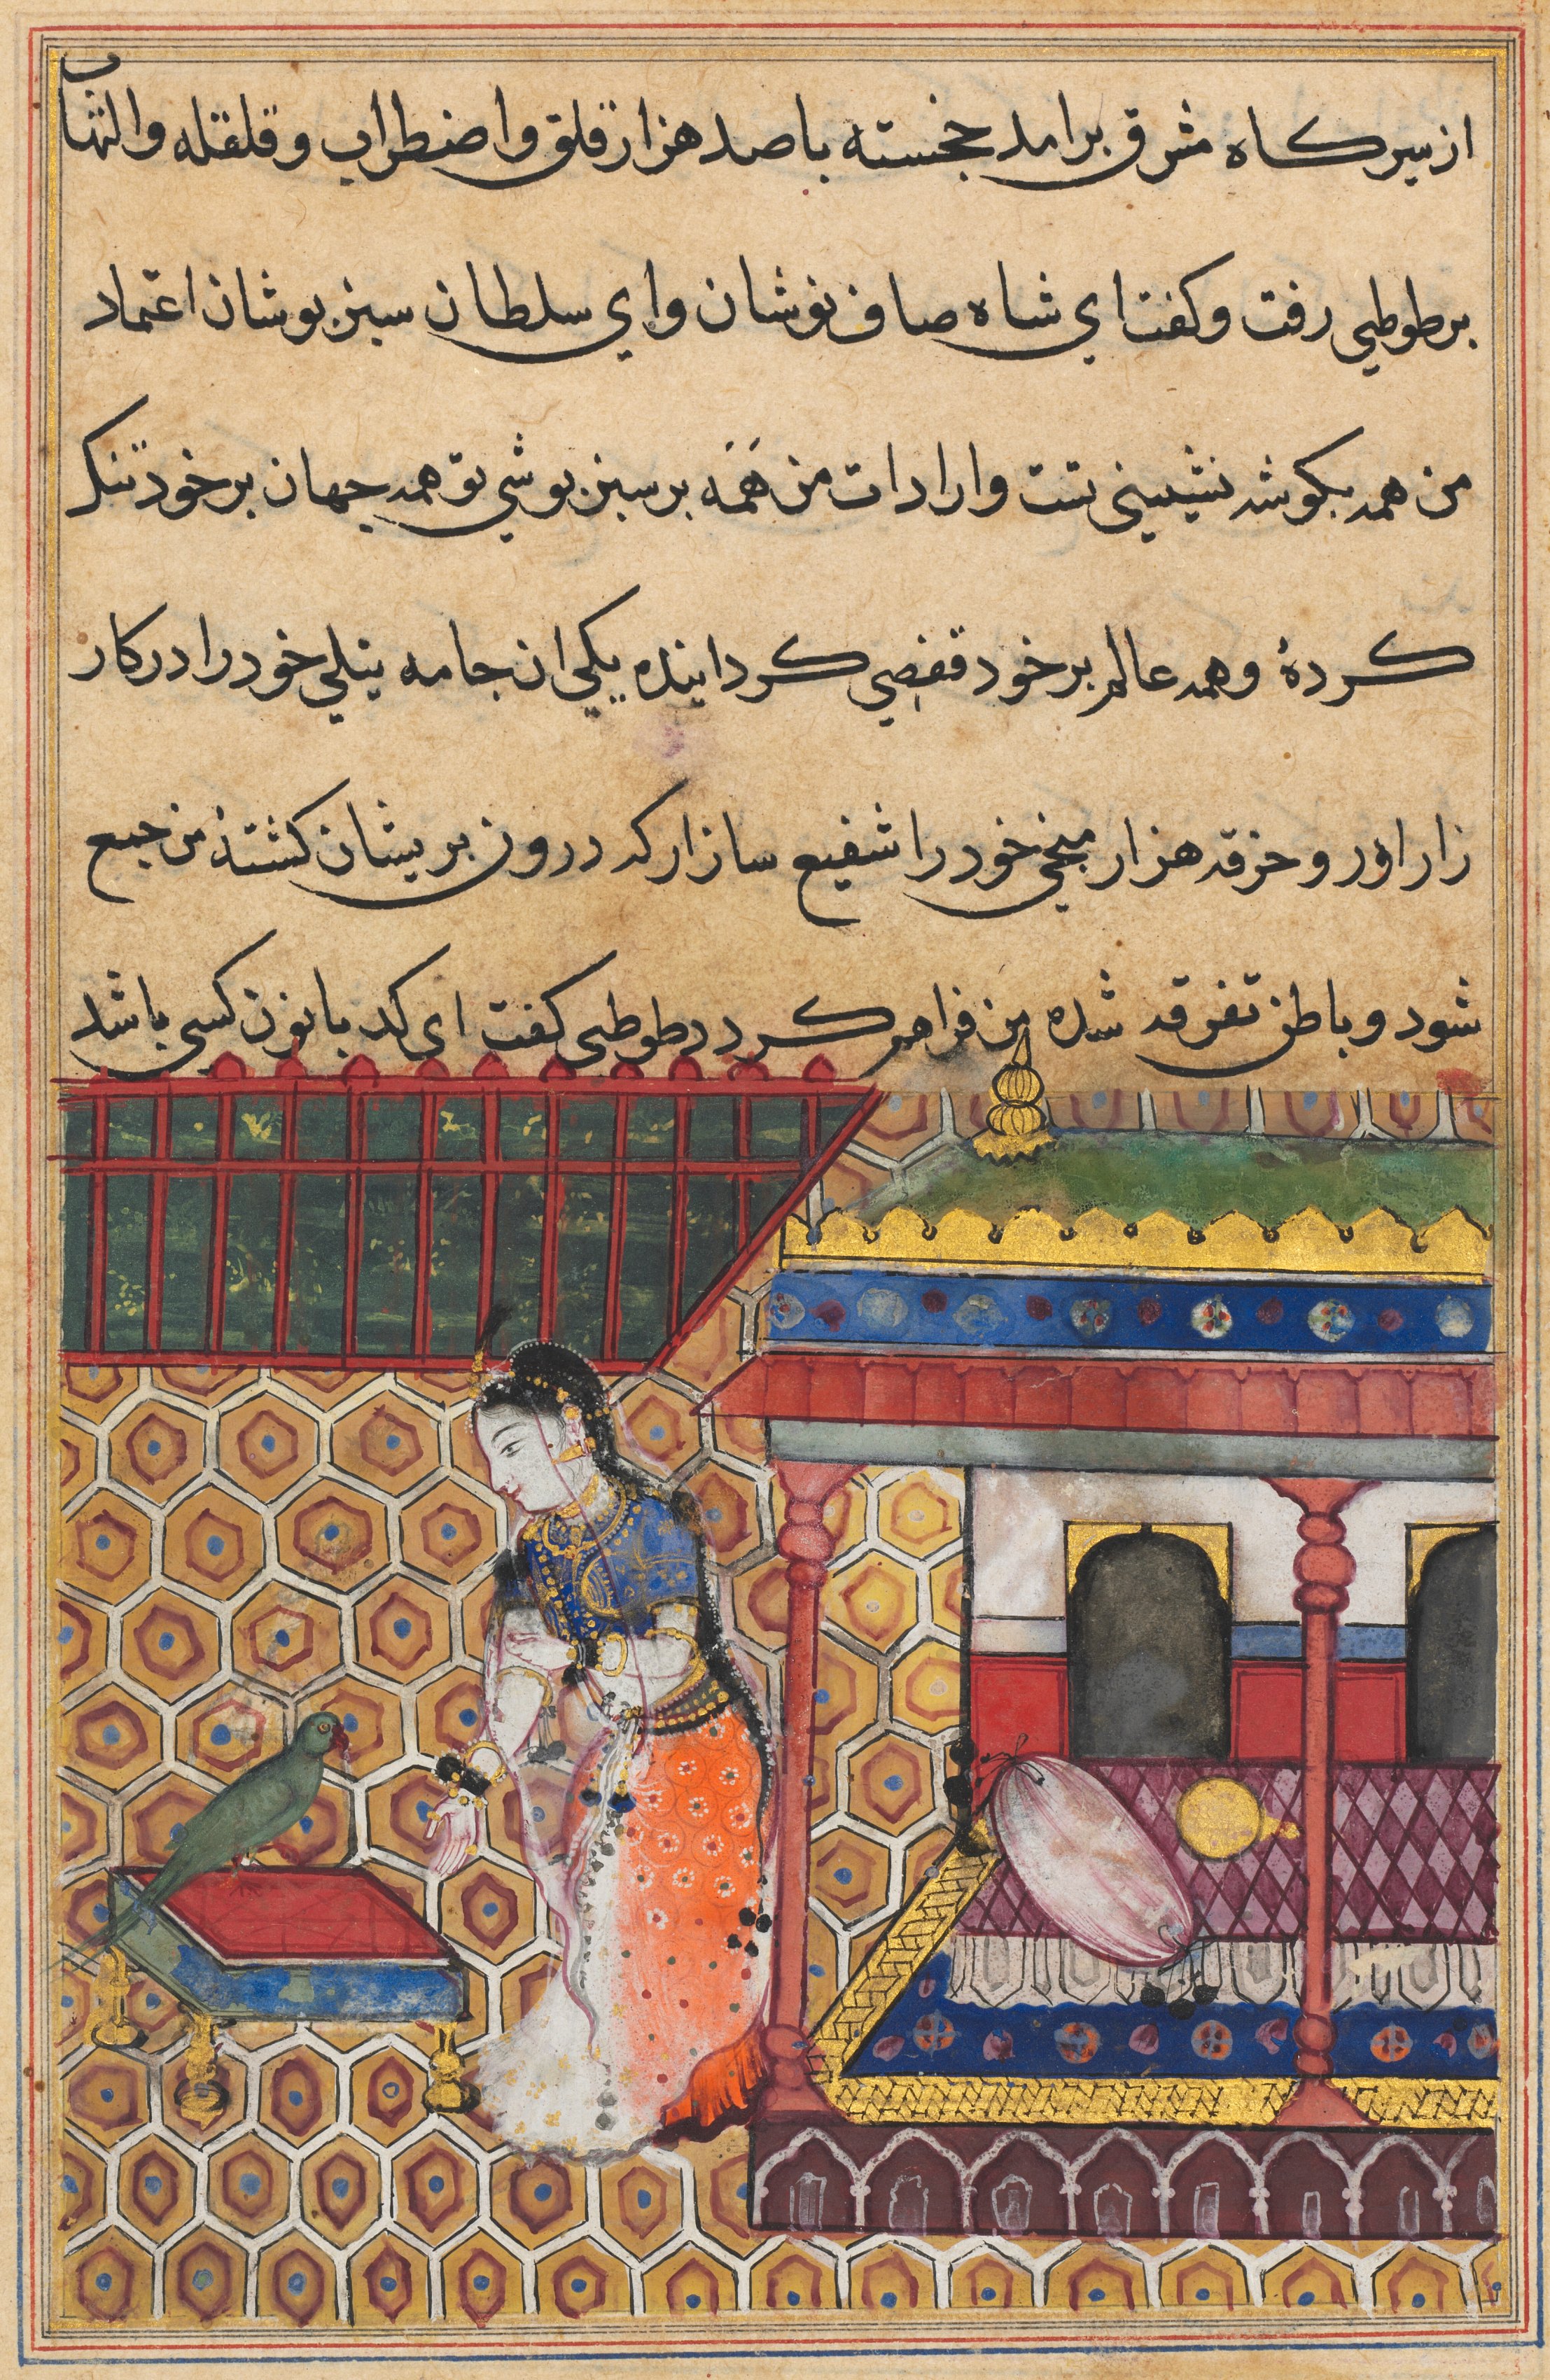 از سیرکاه مشرق برامد خجسته باصد هزار قلق واضطراب و قلقله والتهاب
بر طوطی رفت و کفت ای شاه صاف نوشان وای سلطان سبز بوشان اعتماد
من همه بکوشه نشینی تست وارادات من همه بر سبز بوشی تو همه جهان بر خود تنک
کردهٔ و همه عالم بر خود قفصی کردانیده یکی ان جامه نیلی خود را در کار
زار اور و خرقه هزار میخی خود را شفیع ساز ارکه درون بریشان کشتهٔ من جمع
شود و باطن تفرقه شده من فراهم کردد طوطی کفت ای کد بانو ن کسی باشد